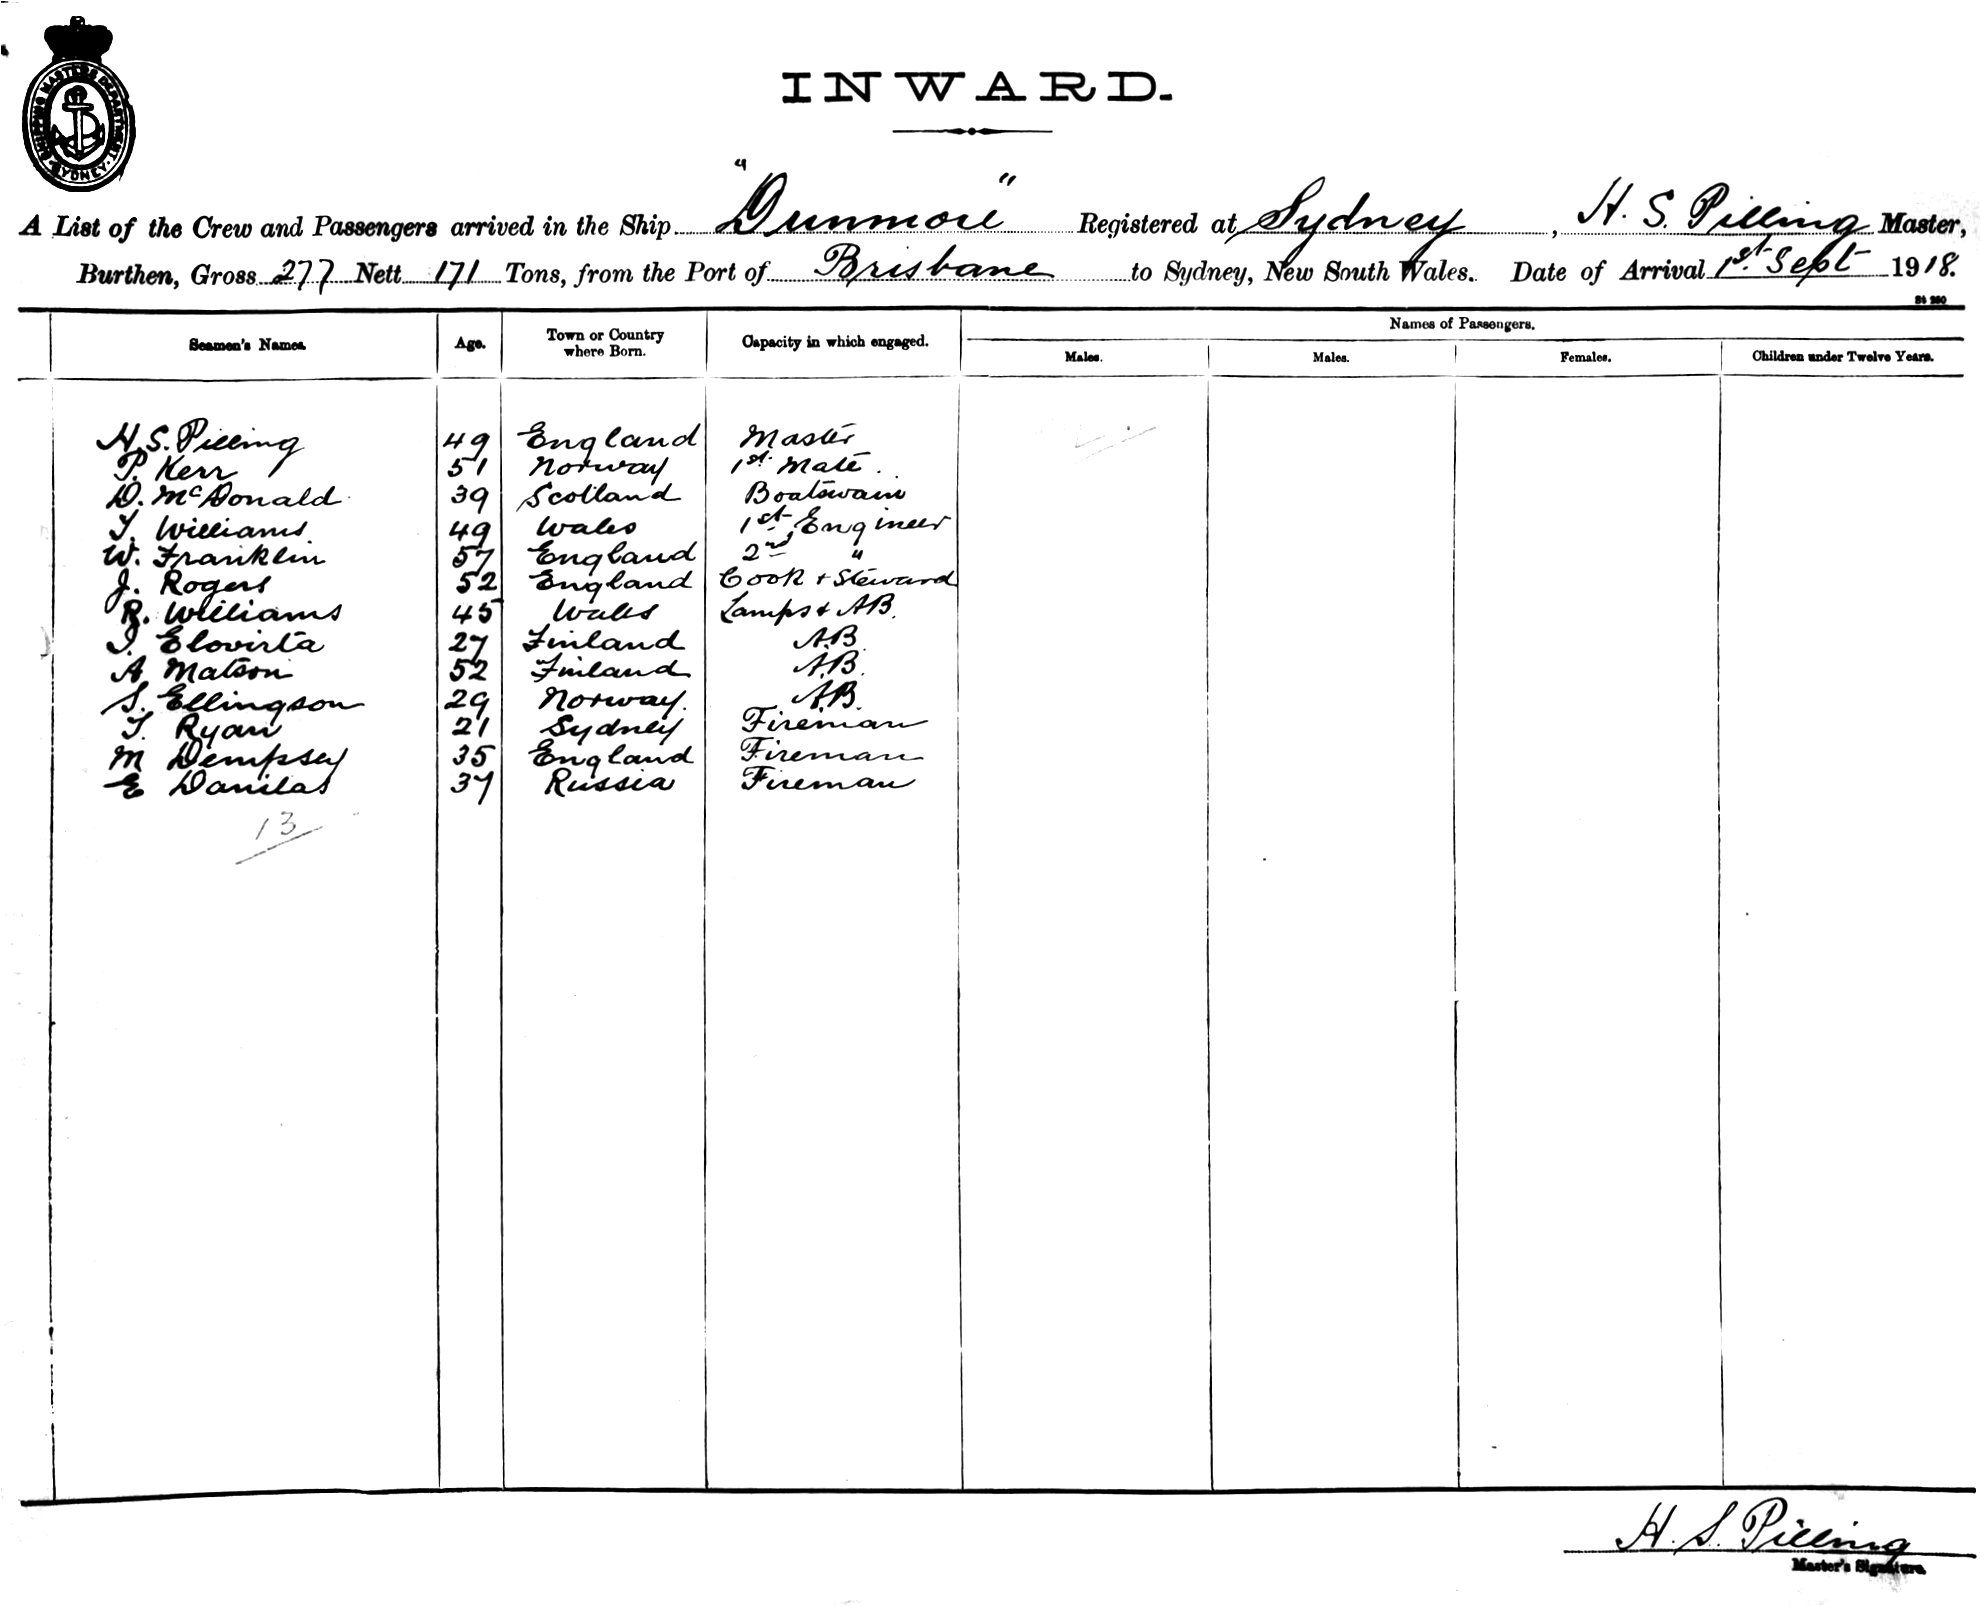 SHIPPING MASTERS DEPARTMENT · SYDNEY ·
INWARD.
A List of the Crew and Passengers arrived in the Ship "Dunmore" Registered at Sydney, H. S. Pilling Master,
Burthen, Gross 277 Nett 171 Tons, from the Port of Brisbane to Sydney, New South Wales. Date of Arrival 1st Sept 1918.
Seamen's Names. Age. Town or Country where Born. Capacity in which engaged. Names of Passengers.
Males. Males. Females. Children under Twelve Years.
H. S. Pilling 49 England Master
P. Kerr 51 Norway 1st Mate.
D. McDonald 39 Scotland Boatswain
T. Williams 49 Wales 1st Engineer
W. Franklin 57 England 2nd "
J. Rogers 52 England Cook + Steward
R. Williams 45 Wales Lamps & AB.
Elovirta 27 Finland A.B.
A Matson 52 Finland A.B.
S. Ellingson 29 Norway. A.B.
T. Ryan 21 Sydney Fireman
M Dempsey 35 England Fireman
E Danilas 37 Russia Fireman
13
H. S. Pilling
Master's Signature.